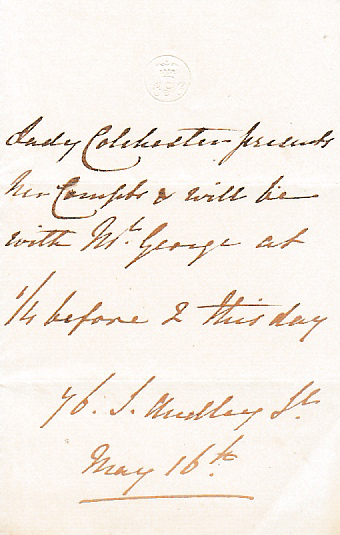 Lady Colchester presents
her Compts & will be
with Mr. George at
1/4 before 2 this day
76. S. Audley St.
May 16th